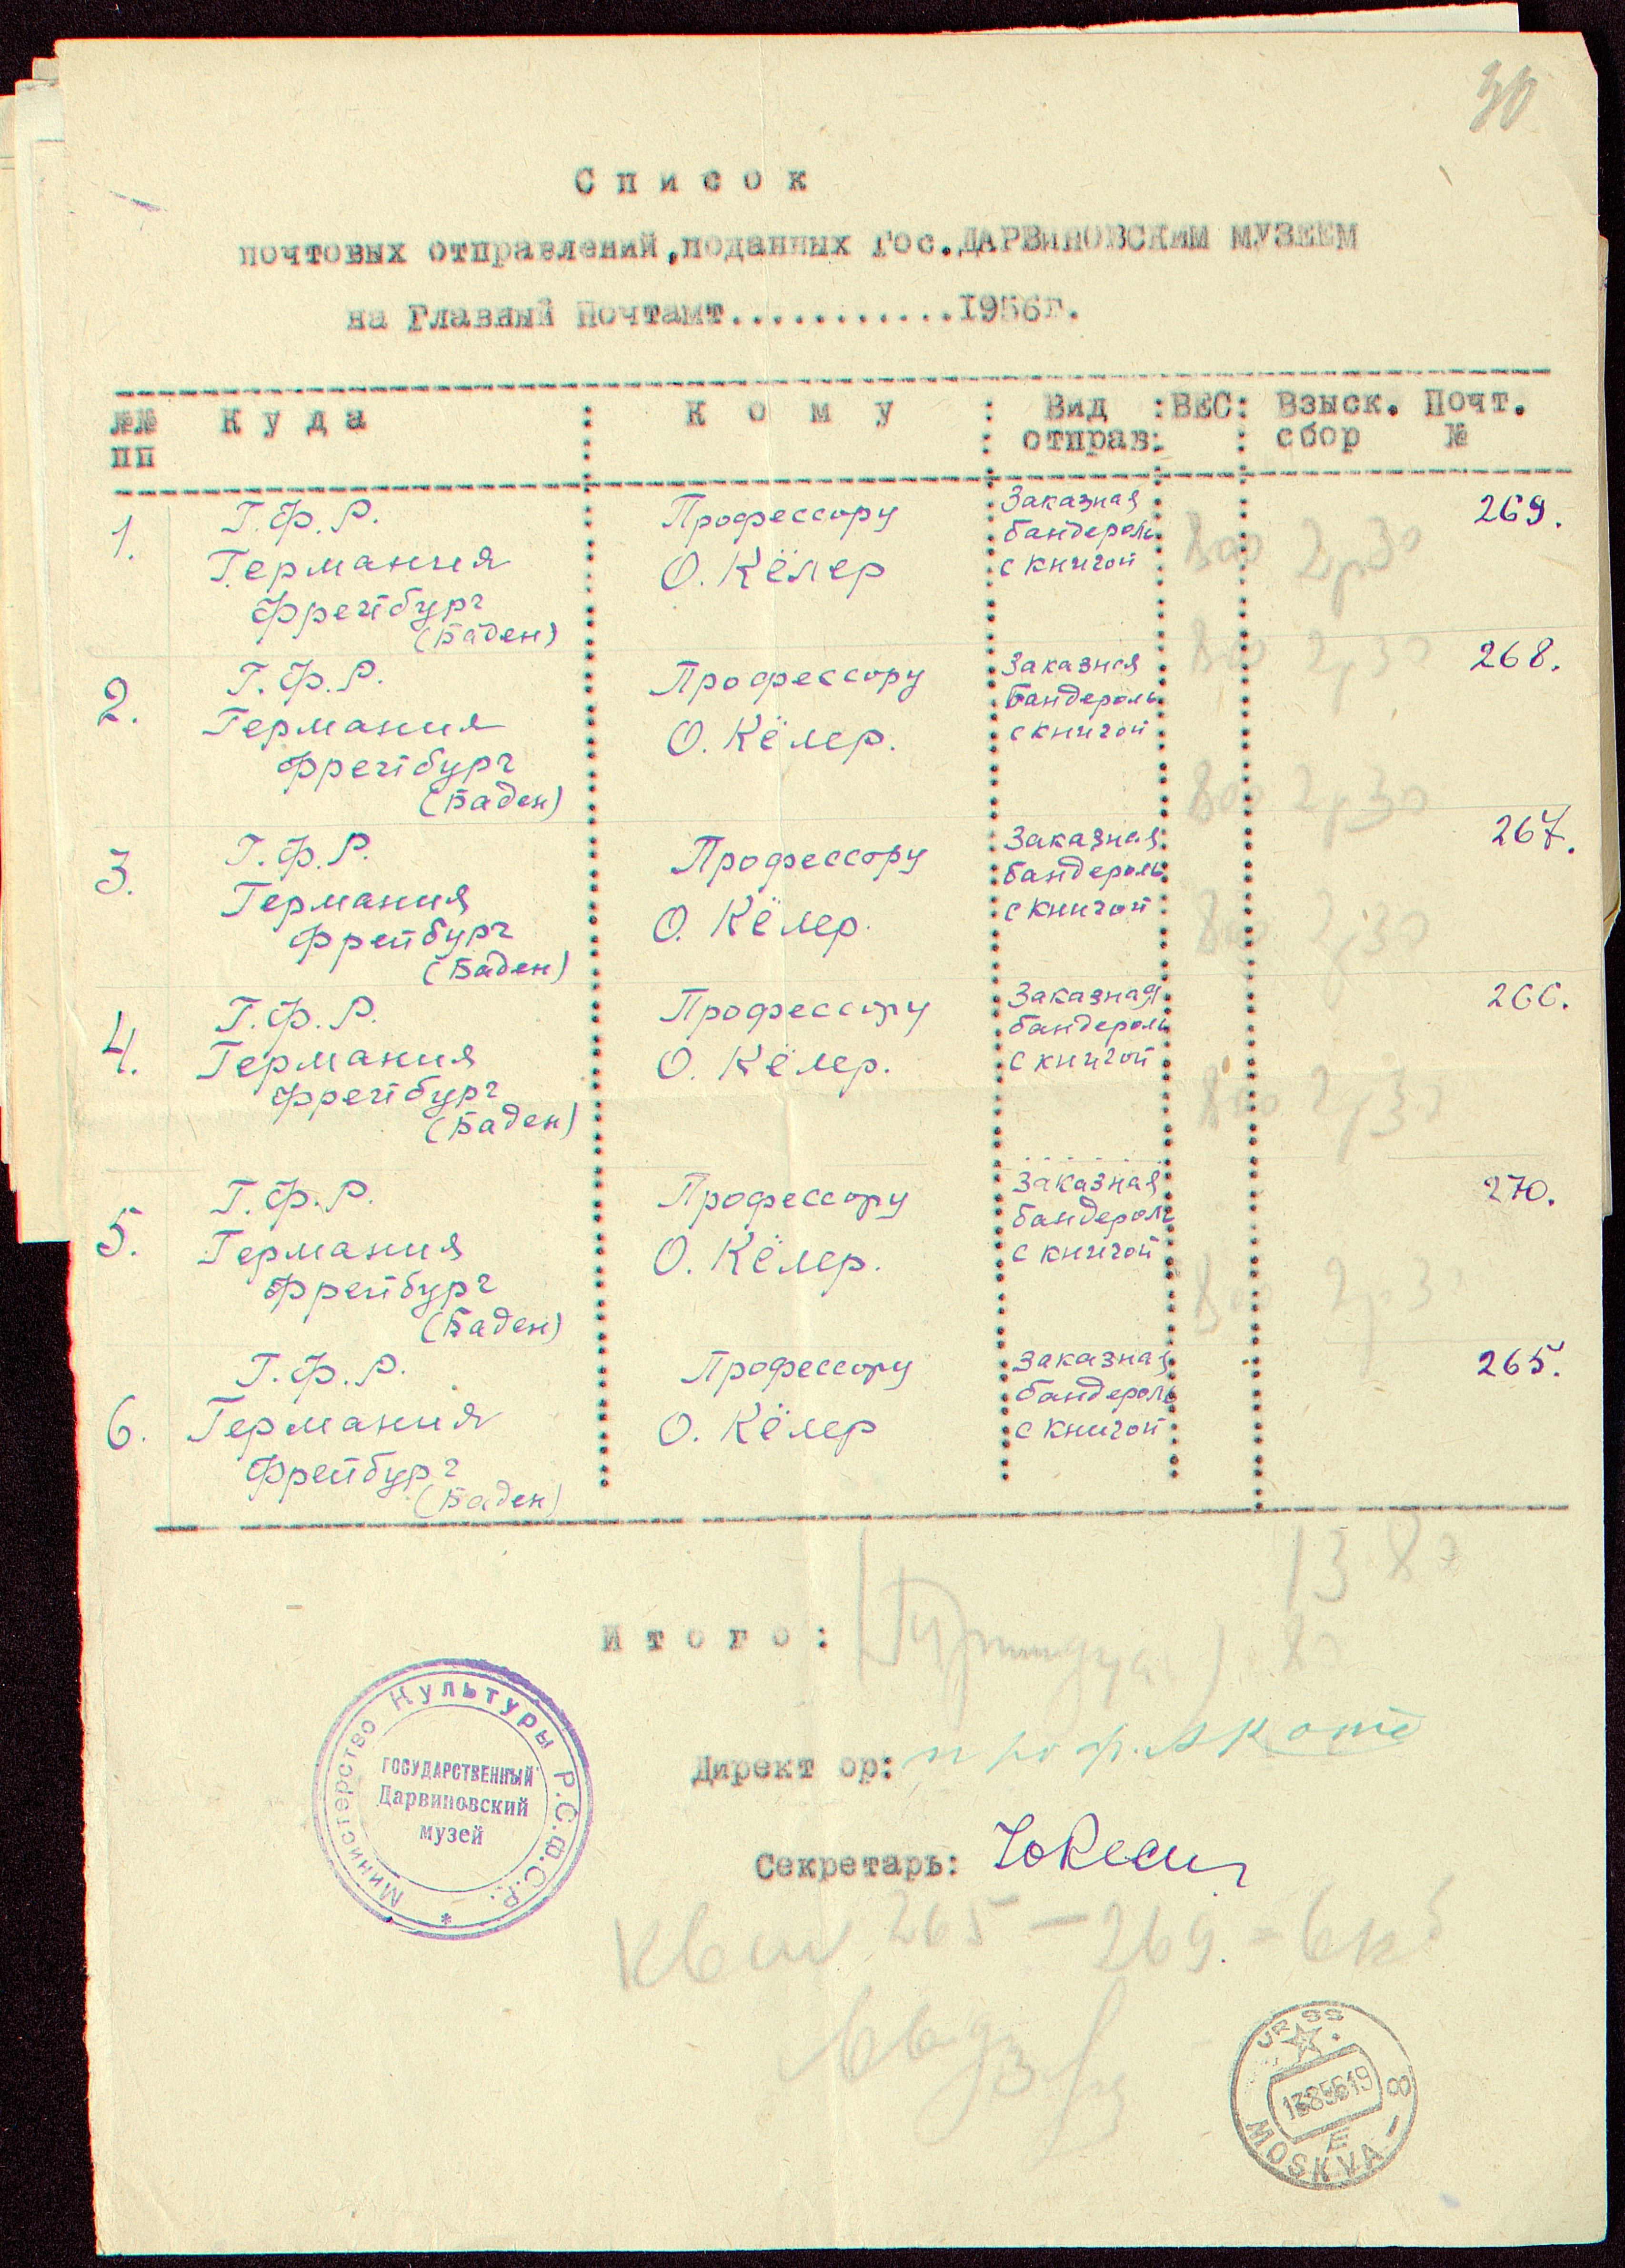 30
Список
почтовых отправлений,поданных Гос.ДАРВИНОВСКИМ МУЗЕЕМ
на Главный Почтамт............1956г.
№№ Куда : Кому : Вид :ВЕС: Взыск. Почт.
пп : отправ: : сбор №
1. Г.Ф.Р. Профессору Заказная 269.
Германия О. Кёлер бандероль 800 2р30
Фрейбург с книгой
(Баден)
2. Г.Ф.Р. Профессору Заказная 800 2р30 268.
Германия О. Кёлер. бандероль
Фрейбург с книгой
(Баден) 800 2р30
3. Г.Ф.Р. Профессору Заказная 267.
Германия О. Кёлер. бандероль
Фрейбург с книгой 800 2р30
(Баден)
4. Г.Ф.Р. Профессору Заказная 266.
Германия О. Кёлер. бандероль
Фрейбург с книгой 800 2р30
(Баден)
5. Г.Ф.Р. Профессору Заказная 270.
Германия О. Кёлер. бандероль
Фрейбург с книгой 800 2р30
(Баден)
6. Г.Ф.Р. Профессору Заказная 265.
Германия О. Кёлер бандероль
Фрейбург с книгой
(Баден)
13 80
Итого: 80
Директ ор: проф. А Котс
Секретарь:
265 – 269 =
Министерство Культуры Р.С.Ф.С.Р.
ГОСУДАРСТВЕННЫЙ
Дарвиновский
музей
*
URSS
MOSKVA – 8